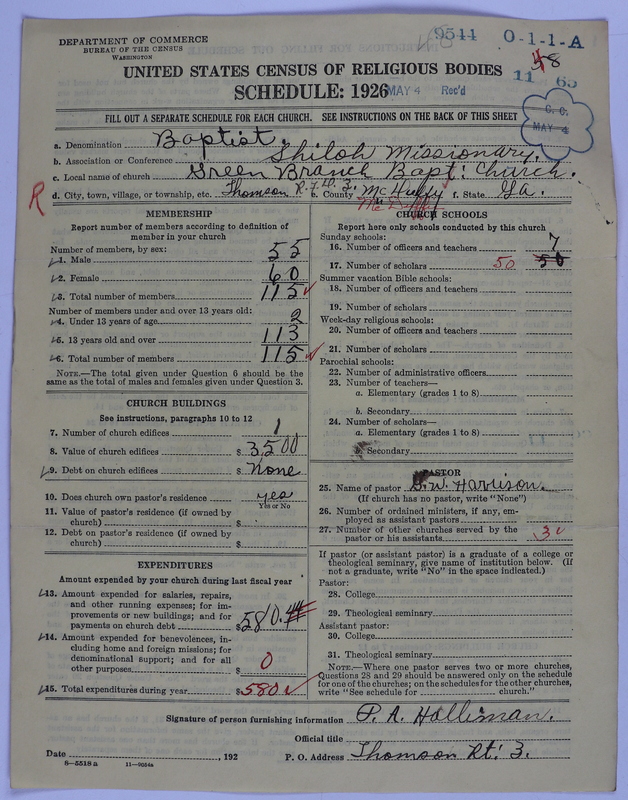 DEPARTMENT OF COMMERCE
BUREAU OF THE CENSUS
WASHINGTON
9544 0-1-1-A
58
11 65
UNITED STATES CENSUS OF RELIGIOUS BODIES
SCHEDULE: 1926 MAY 4 Rec'd
C. C.
MAY 4
FILL OUT A SEPARATE SCHEDULE FOR EACH CHURCH. SEE INSTRUCTIONS ON THE BACK OF THIS SHEET
a. Denomination Baptist.
b. Association or Conference Shiloh Missionary.
c. Local name of church Green Branch Bapt. Church.
R
d. City, town, village, or township, etc. Thomson R.F.D. 3. e. County McHuffy f. State Ga.
Mc Duffie
MEMBERSHIP
Report number of members according to definition of
member in your church
Number of members, by sex:
1. Male 55
2. Female 60
3. Total number of members 115
Number of members under and over 13 years old:
4. Under 13 years of age 2
5. 13 years old and over 113
6. Total number of members 115
NOTE.—The total given under Question 6 should be
same as the total of males and females given under Question 3.
CHURCH BUILDINGS
See instructions, paragraphs 10 to 12
7. Number of church edifices 1
8. Value of church edifices $ 3,500
9. Debt on church edifices $ None
10. Does church own pastor's residence yes
Yes or No
11. Value of pastor's residence (if owned by
church) $
12. Debt on pastor's residence (if owned by
church) $
EXPENDITURES
Amount expended by your church during last fiscal year
13. Amount expended for salaries, repairs,
and other running expenses; for im-
provements or new buildings; and for
payments on church debt $ 580.44
14. Amount expended for benevolences, in-
cluding home and foreign missions; for
denominational support; and for all
other purposes $ 0
15. Total expenditures during year $ 580
CHURCH SCHOOLS
Report here only schools conducted by this church
Sunday schools:
16. Number of officers and teachers 7
17. Number of scholars 50 50
Summer vacation Bible schools:
18. Number of officers and teachers
19. Number of scholars
Week-day religious schools:
20. Number of officers and teachers
21. Number of scholars
Parochial schools:
22. Number of administrative officers
23. Number of teachers—
a. Elementary (grades 1 to 8)
b. Secondary
24. Number of scholars—
a. Elementary (grades 1 to 8)
b. Secondary
PASTOR
25. Name of pastor G.W. Harrison.
(If church has no pastor, write "None")
26. Number of ordained ministers, if any, em-
ployed as assistant pastors
27. Number of other churches served by the
pastor or his assistants 3
If pastor (or assistant pastor) is a graduate of a college or
theological seminary, give name of institution below. (If
not a graduate, write "No" in the space indicated.)
Pastor:
28. College
29. Theological seminary
Assistant pastor:
30. College
31. Theological seminary
NOTE.—Where one pastor serves two or more churches,
Questions 28 and 29 should be answered only on the schedule
for one of the churches; on the schedules for the other churches,
write "See schedule for church."
Signature of person furnishing information P. A. Holliman.
Official title
Date , 192 P. O. Address Thomson Rt. 3.
8—5518a 11—9054a